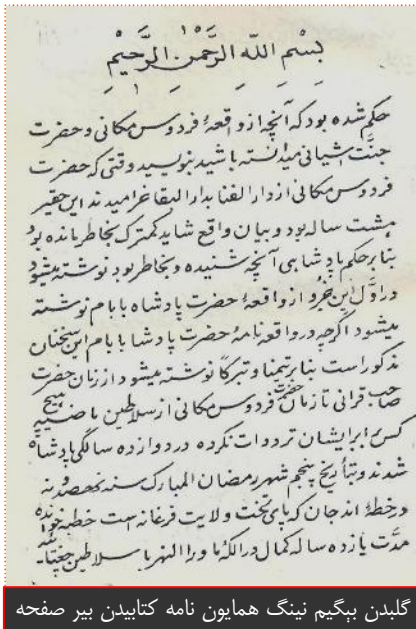 بسم الله الرحمن الرحیم
حکم شده بود که آنچه از واقعهٔ فردوس مکانی و حضرت
جنت آشیانی میدانسته باشید بنویسید وقتی که حضرت
فردوس مکانی از دار الفنا بدار البقا خرامیدند این حقیر
هشت ساله بود و بیان واقع شاید کمترک بخاطر مانده بود
بنابر حکم پادشاهی آنچه شنیده و بخاطر بود نوشته میشود
در اول این جزو از واقعهٔ حضرت پادشاه بابام نوشته
میشود اگرچه در واقعه نامهٔ حضرت پادشاه بابام این سخنان
مذکور است بنابر تیمنا و تبرکا نوشته میشود از زمان حضرت
صاحب قرانی تا زمان حضرت فردوس مکانی از سلاطین ماضیه هیچ
کس برابر ایشان ترددات نکرده در دوازده سالگی پادشاه
شدند و بتأریخ پنجم شهر رمضان المبارک سنه نهصد و نه
در خطهٔ اندجان که پای تخت ولایت فرغانه است خطبه خوانده شد
مدت یازده ساله کمال در الکهٔ ماورا النهر با سلاطین چغتا
گلبدن بېگیم نینگ همایون نامه کتابیدن بیر صفحه